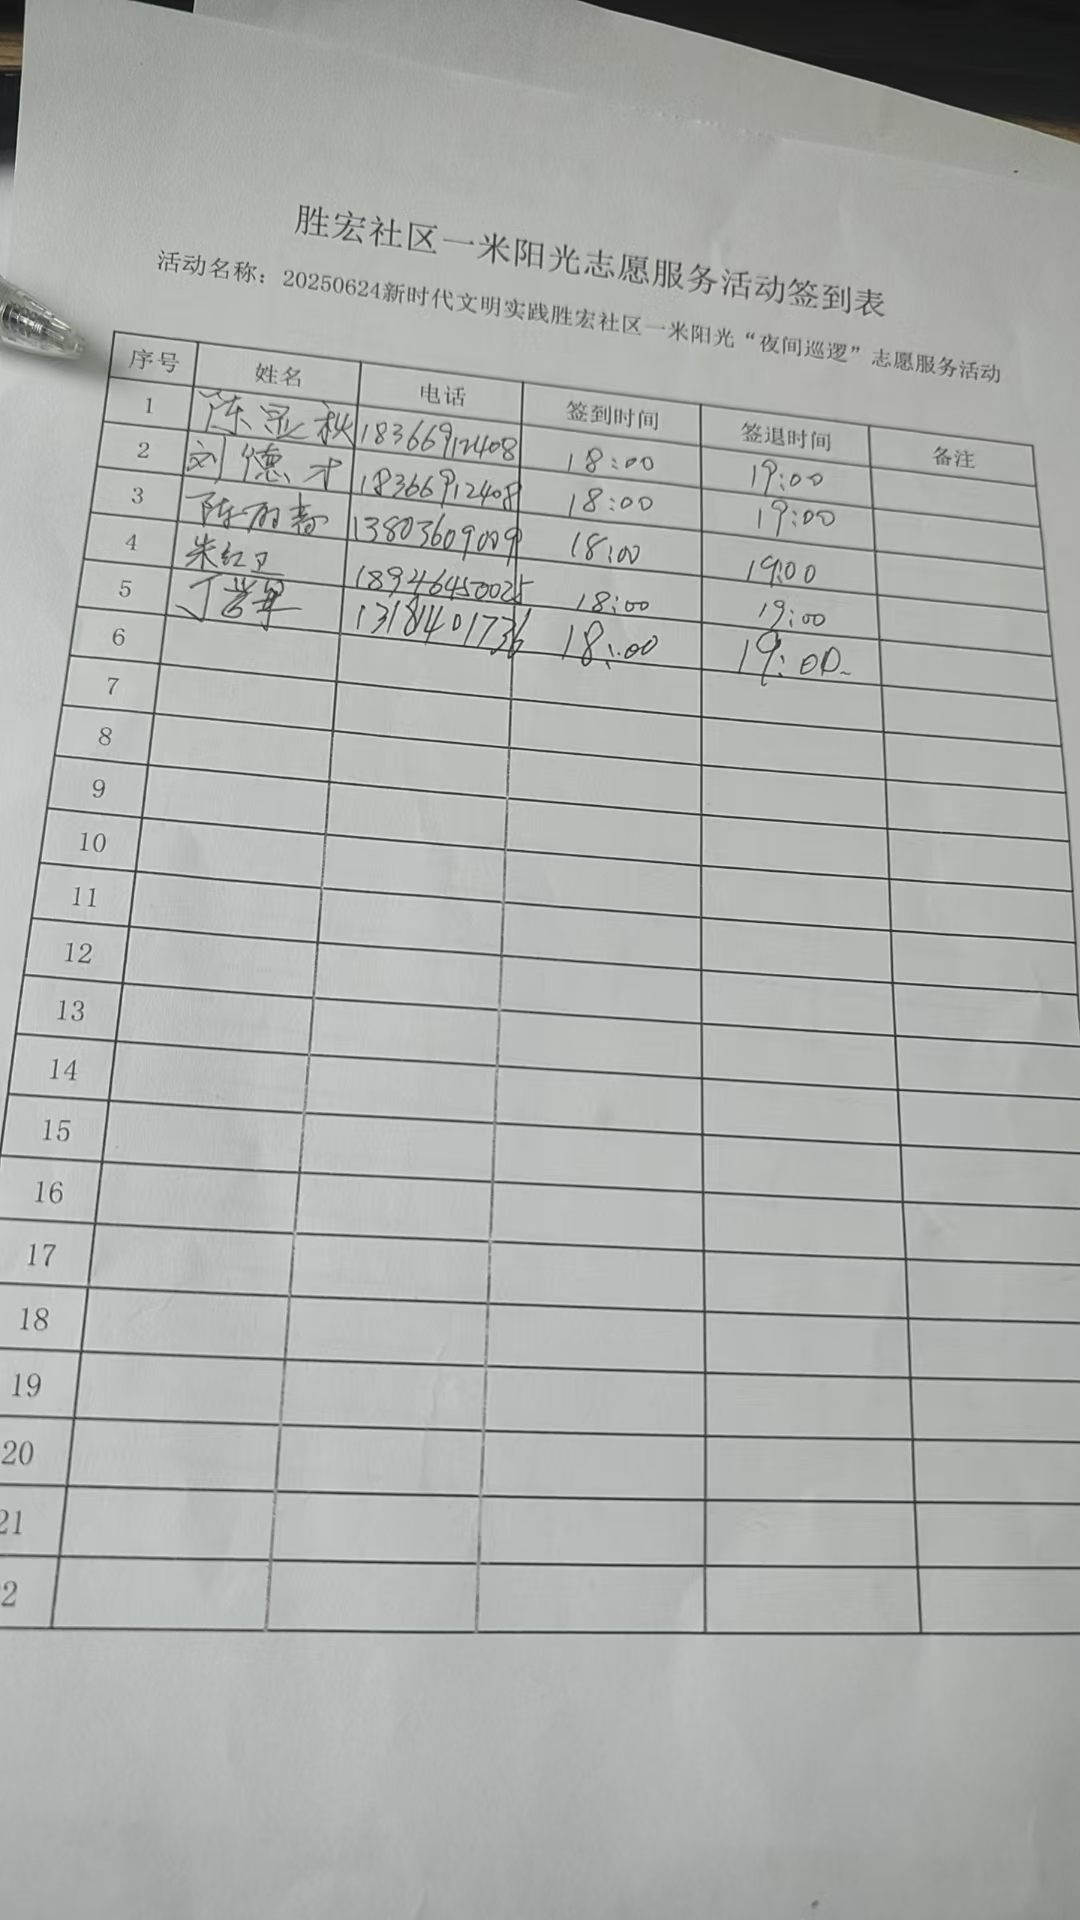 胜宏社区一米阳光志愿服务活动签到表
活动名称：20250624新时代文明实践胜宏社区一米阳光“夜间巡逻”志愿服务活动
序号 姓名 电话 签到时间 签退时间 备注
1 陈 秋 18366912408 18:00 19:00
2 刘德才 18366912408 18:00 19:00
3 陈丽春 13803609009 18:00 19:00
4 朱红卫 18946450025 18:00 19:00
5 丁 13184401736 18:00 19:00
6
7
8
9
10
11
12
13
14
15
16
17
18
19
20
21
2